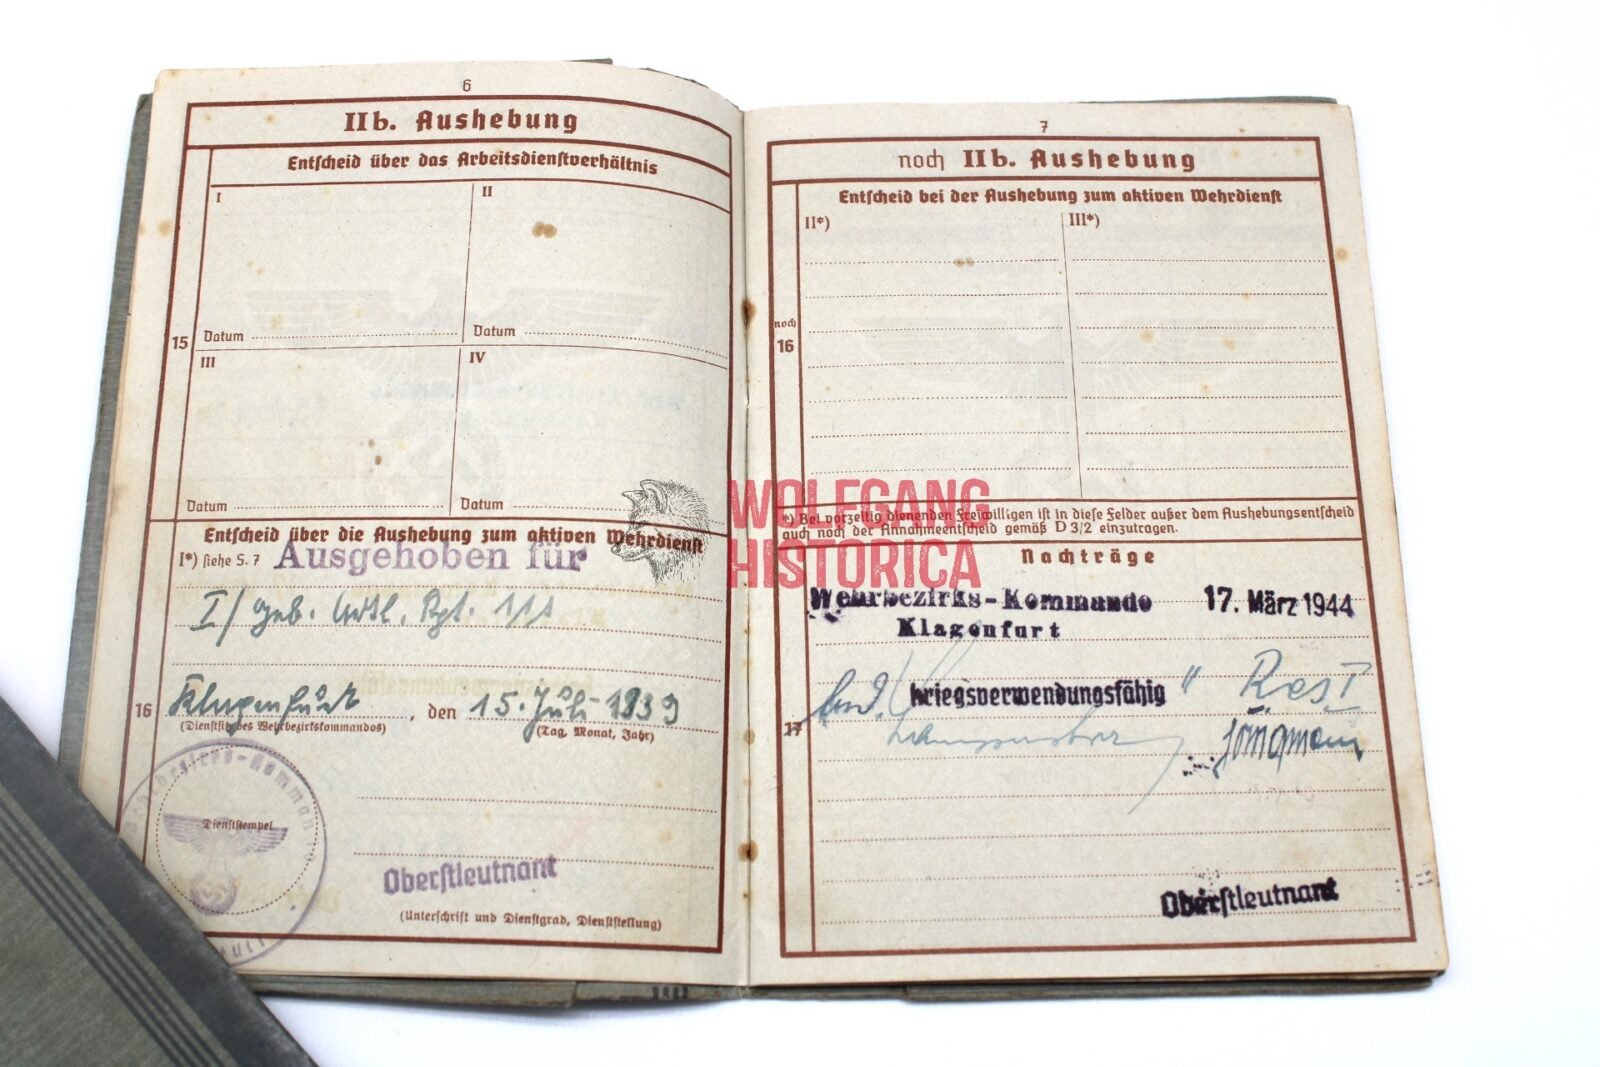 6
IIb. Aushebung
Entscheid über das Arbeitsdienstverhältnis
I
II
Datum
Datum
15
III
IV
Datum
Datum
Entscheid über die Aushebung zum aktiven Wehrdienst
I*) siehe S. 7 Ausgehoben für
I/ Geb. Artl. Rgt. 111
16
Klagenfurt, den 15. Juli 1939
(Dienstsitz des Wehrbezirkskommandos)
(Tag, Monat, Jahr)
Wehrbezirks-Kommando
Dienststempel
Oberstleutnant
(Unterschrift und Dienstgrad, Dienststellung)
7
noch IIb. Aushebung
Entscheid bei der Aushebung zum aktiven Wehrdienst
II*)
III*)
noch
16
*) Bei vorzeitig dienenden Freiwilligen ist in diese Felder außer dem Aushebungsentscheid
auch noch der Annahmeentscheid gemäß D 3/2 einzutragen.
Nachträge
Wehrbezirks-Kommando 17. März 1944
Klagenfurt
kriegsverwendungsfähig " R. Res. I
17
Oberstleutnant
WOLFGANG
HISTORICA